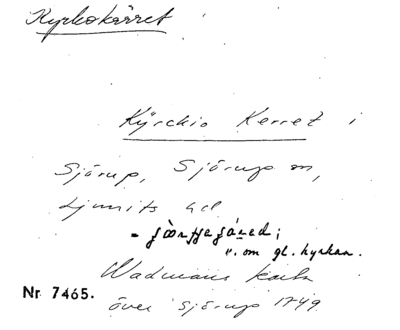 Kyrkokärret
Kÿrckio Kerret i
Sjörup, Sjörup sn,
Ljunits hd
v. om gl. kyrkan.
Wadmans karta
Nr 7465.
över Sjörup 1749.